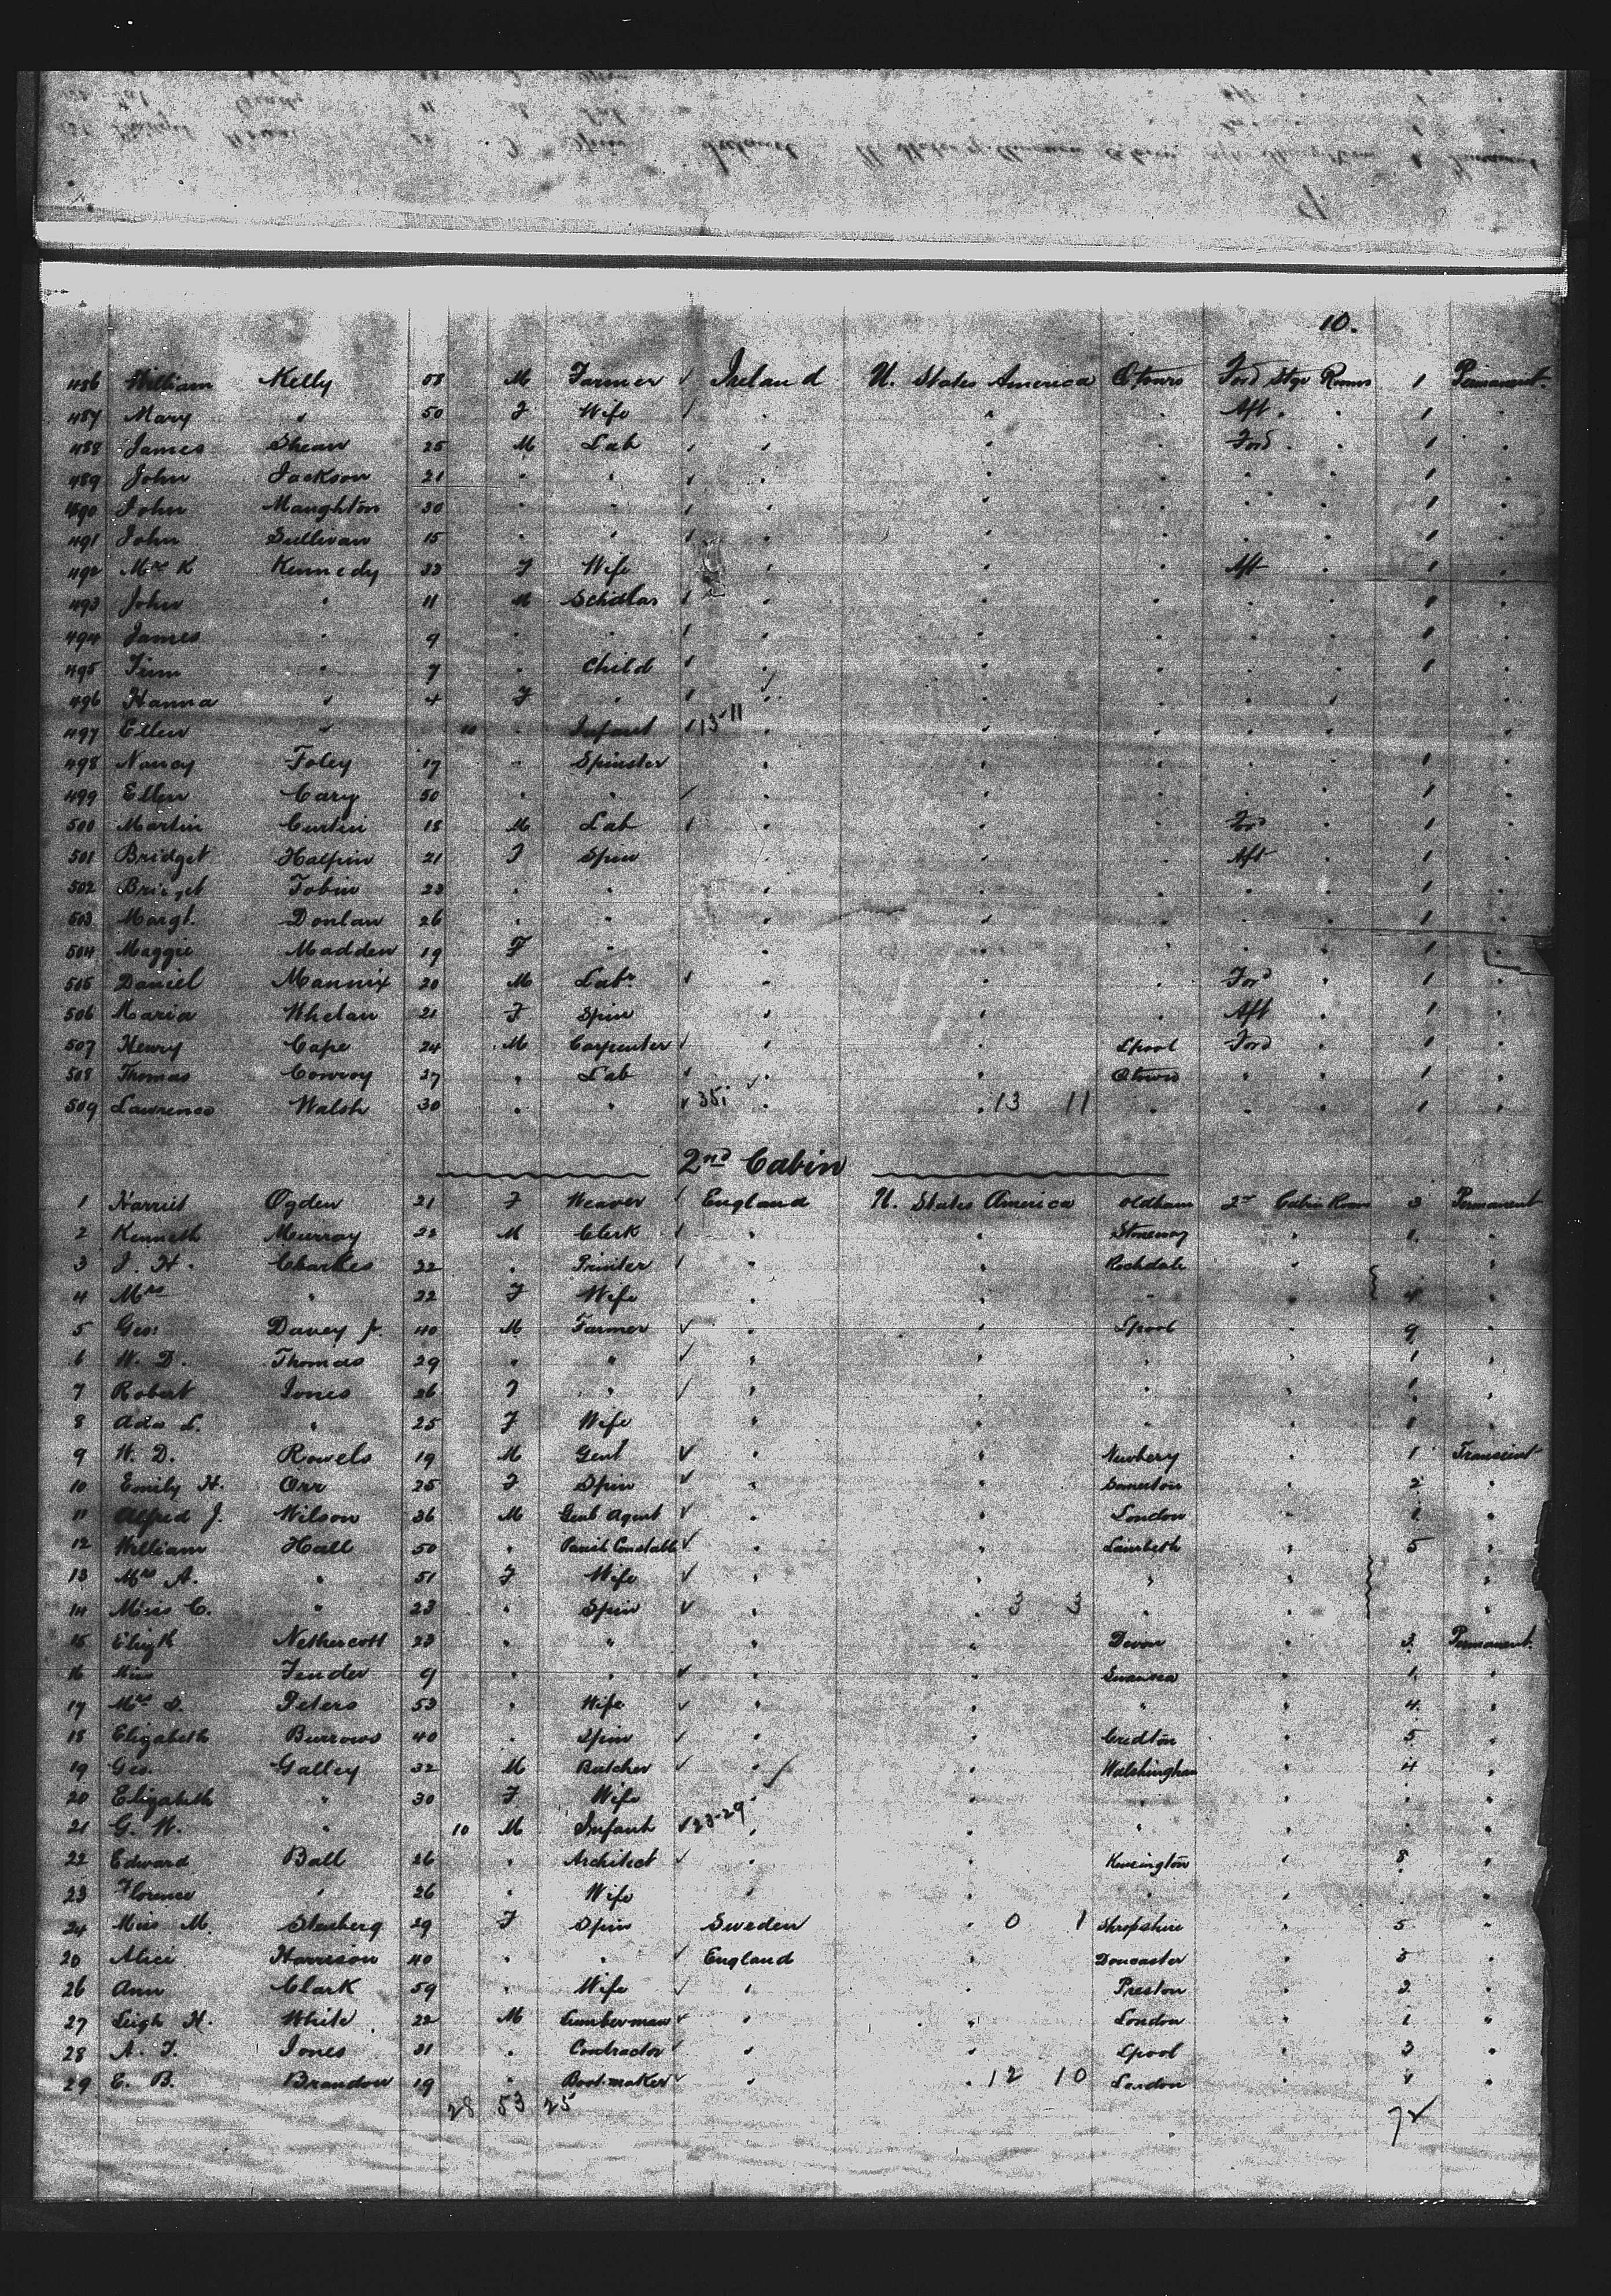 10.
486 William Kelly 58 M Farmer Ireland U. States America Qtown Ford Stge Rooms 1 Permanent.
487 Mary " 50 F Wife " " " Aft " 1 "
488 James Shean 25 M Lab " " " Ford " 1 "
489 John Jackson 21 " " " " " " " 1 "
490 John Maughton 30 " " " " " " " 1 "
491 John Sullivan 15 " " " " " " " 1 "
492 Mrs K Kennedy 33 F Wife " " " Aft " 1 "
493 John " 11 M Scholar " " " " " 1 "
494 James " 9 " " " " " " " 1 "
495 Jim " 7 " Child " " " " " 1 "
496 Hanna " 4 F " " " " " " "
497 Ellen " 10 " Infant 13-11 " " " " " "
498 Nancy Foley 17 " Spinster " " " " " 1 "
499 Ellen Cary 50 " " " " " " " 1 "
500 Martin Curtin 18 M Lab " " " Ford " 1 "
501 Bridget Halpin 21 F Spin " " " Aft " 1 "
502 Bridget Tobin 23 " " " " " " " 1 "
503 Margt. Donlan 26 " " " " " " " 1 "
504 Maggie Madden 19 F " " " " " " 1 "
505 Daniel Mannix 20 M Labr " " " Ford " 1 "
506 Maria Whelan 21 F Spin " " " Aft " 1 "
507 Henry Cape 24 M Carpenter " " Lpool Ford " 1 "
508 Thomas Conroy 27 " Lab " " Qtown " " 1 "
509 Lawrence Walsh 30 " " 35 " " 13 11 " " " 1 "
2nd Cabin
1 Harriet Ogden 21 F Weaver England U. States America Oldham 2nd Cabin Room 3 Permanent
2 Kenneth Murray 22 M Clerk " " Stornoway " 1 "
3 J. H. Charles 22 " Printer " " Rochdale " "
4 Mrs " 22 F Wife " " " " 4 "
5 Geo: Davey Jr. 40 M Farmer " " Lpool " 9 "
6 W. D. Thomas 29 " " " " " " 1 "
7 Robert Jones 26 " " " " " 1 "
8 Ada L. " 25 F Wife " " " " 1 "
9 W. D. Rowels 19 M Gent " " Newbery " 1 Transient
10 Emily H. Orr 25 F Spin " " " 2 "
11 Alfred J. Wilson 36 M Genl Agent " " London " 1 "
12 William Hall 50 " Parish Constable " " Lambeth " 5 "
13 Mrs A. " 51 F Wife " " " " "
14 Miss C. " 23 " Spin " " 3 3 " " "
15 Elizth Nethercott 23 " " " " Devon " 3 Permanent.
16 Miss Fender 9 " " " " Swansea " 1 "
17 Mrs S. Peters 53 " Wife " " " " 4 "
18 Elizabeth Burrows 40 " Spin " " Credton " 5 "
19 Geo. Galley 32 M Butcher " " Walshingham " 4 "
20 Elizabeth " 30 F Wife " " " " " "
21 G. W. " 10 M Infant 23-29 " " " " " "
22 Edward Ball 26 " Architect " " Kensington " 8 "
23 Florence " 26 " Wife " " " " " "
24 Miss M. Stenberg 29 F Spin Sweden " 0 1 Shropshire " 5 "
20 Alice Harrison 40 " " England " Doncaster " 5 "
26 Ann Clark 59 " Wife " " Preston " 3 "
27 Leigh H. White 22 M Lumberman " " London " 1 "
28 A. J. Jones 31 " Contractor " " Lpool " 3 "
29 E. B. Brandon 19 " Bootmaker " " 12 10 London " "
28 53 25